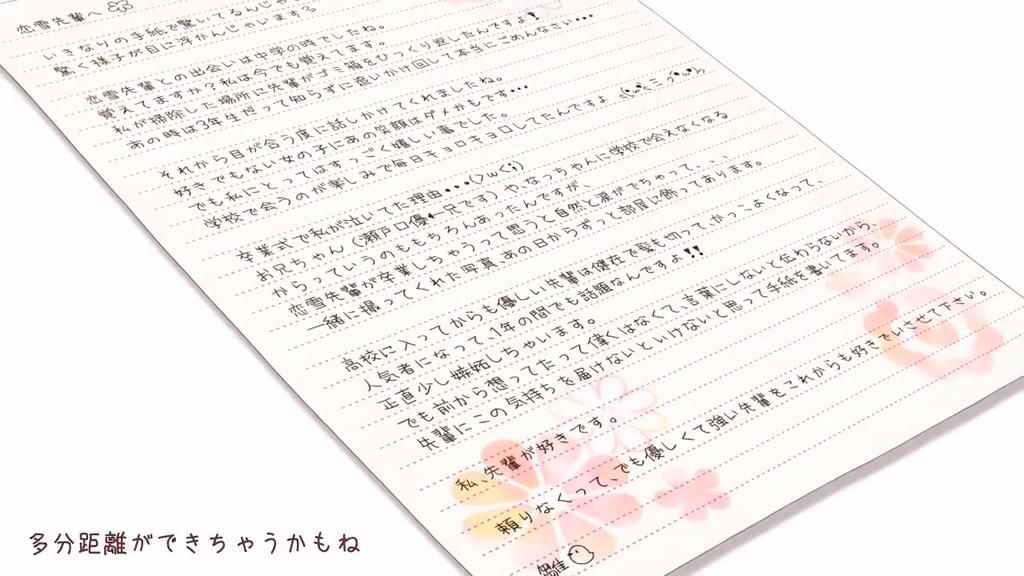 恋雪先輩へ
いきなりの手紙で驚いてるんじゃ
驚く様子が目に浮かんじゃいます
恋雪先輩との出会いは中学の時でしたね。
覚えてますか？私は今でも覚えてます。
私が掃除した場所に先輩がゴミ箱をひっくり返したんですよ!!
あの時は3年生だって知らずに追いかけ回して本当にごめんなさい…
それから目が合う度に話しかけてくれましたね。
好きでもない女の子にあの笑顔はダメかもです…
でも私にとってはすっごく嬉しい事でした。
学校で会うのが楽しみで毎日キョロキョロしてたんですよ
卒業式で私が泣いてた理由…(>w<;)
お兄ちゃん（瀬戸口優←兄です）や、なっちゃんに学校で会えなくなる
からっていうのももちろんあったんですが、
恋雪先輩が卒業しちゃうって思うと自然と涙がでちゃって、、、
一緒に撮ってくれた写真 あの日からずっと部屋に飾ってあります。
高校に入ってからも優しい先輩は健在で髪も切ってかっこよくなって、
人気者になって、1年の間でも話題なんですよ!!
正直少し嫉妬しちゃいます。
でも前から想ってたって凄くはなくて、言葉にしないと伝わらないから、
先輩にこの気持ちを届けないといけないと思って手紙を書いてます。
私、先輩が好きです。
頼りなくって、でも優しくて強い先輩をこれからも好きでいさせて下さい。
雛
多分距離ができちゃうかもね